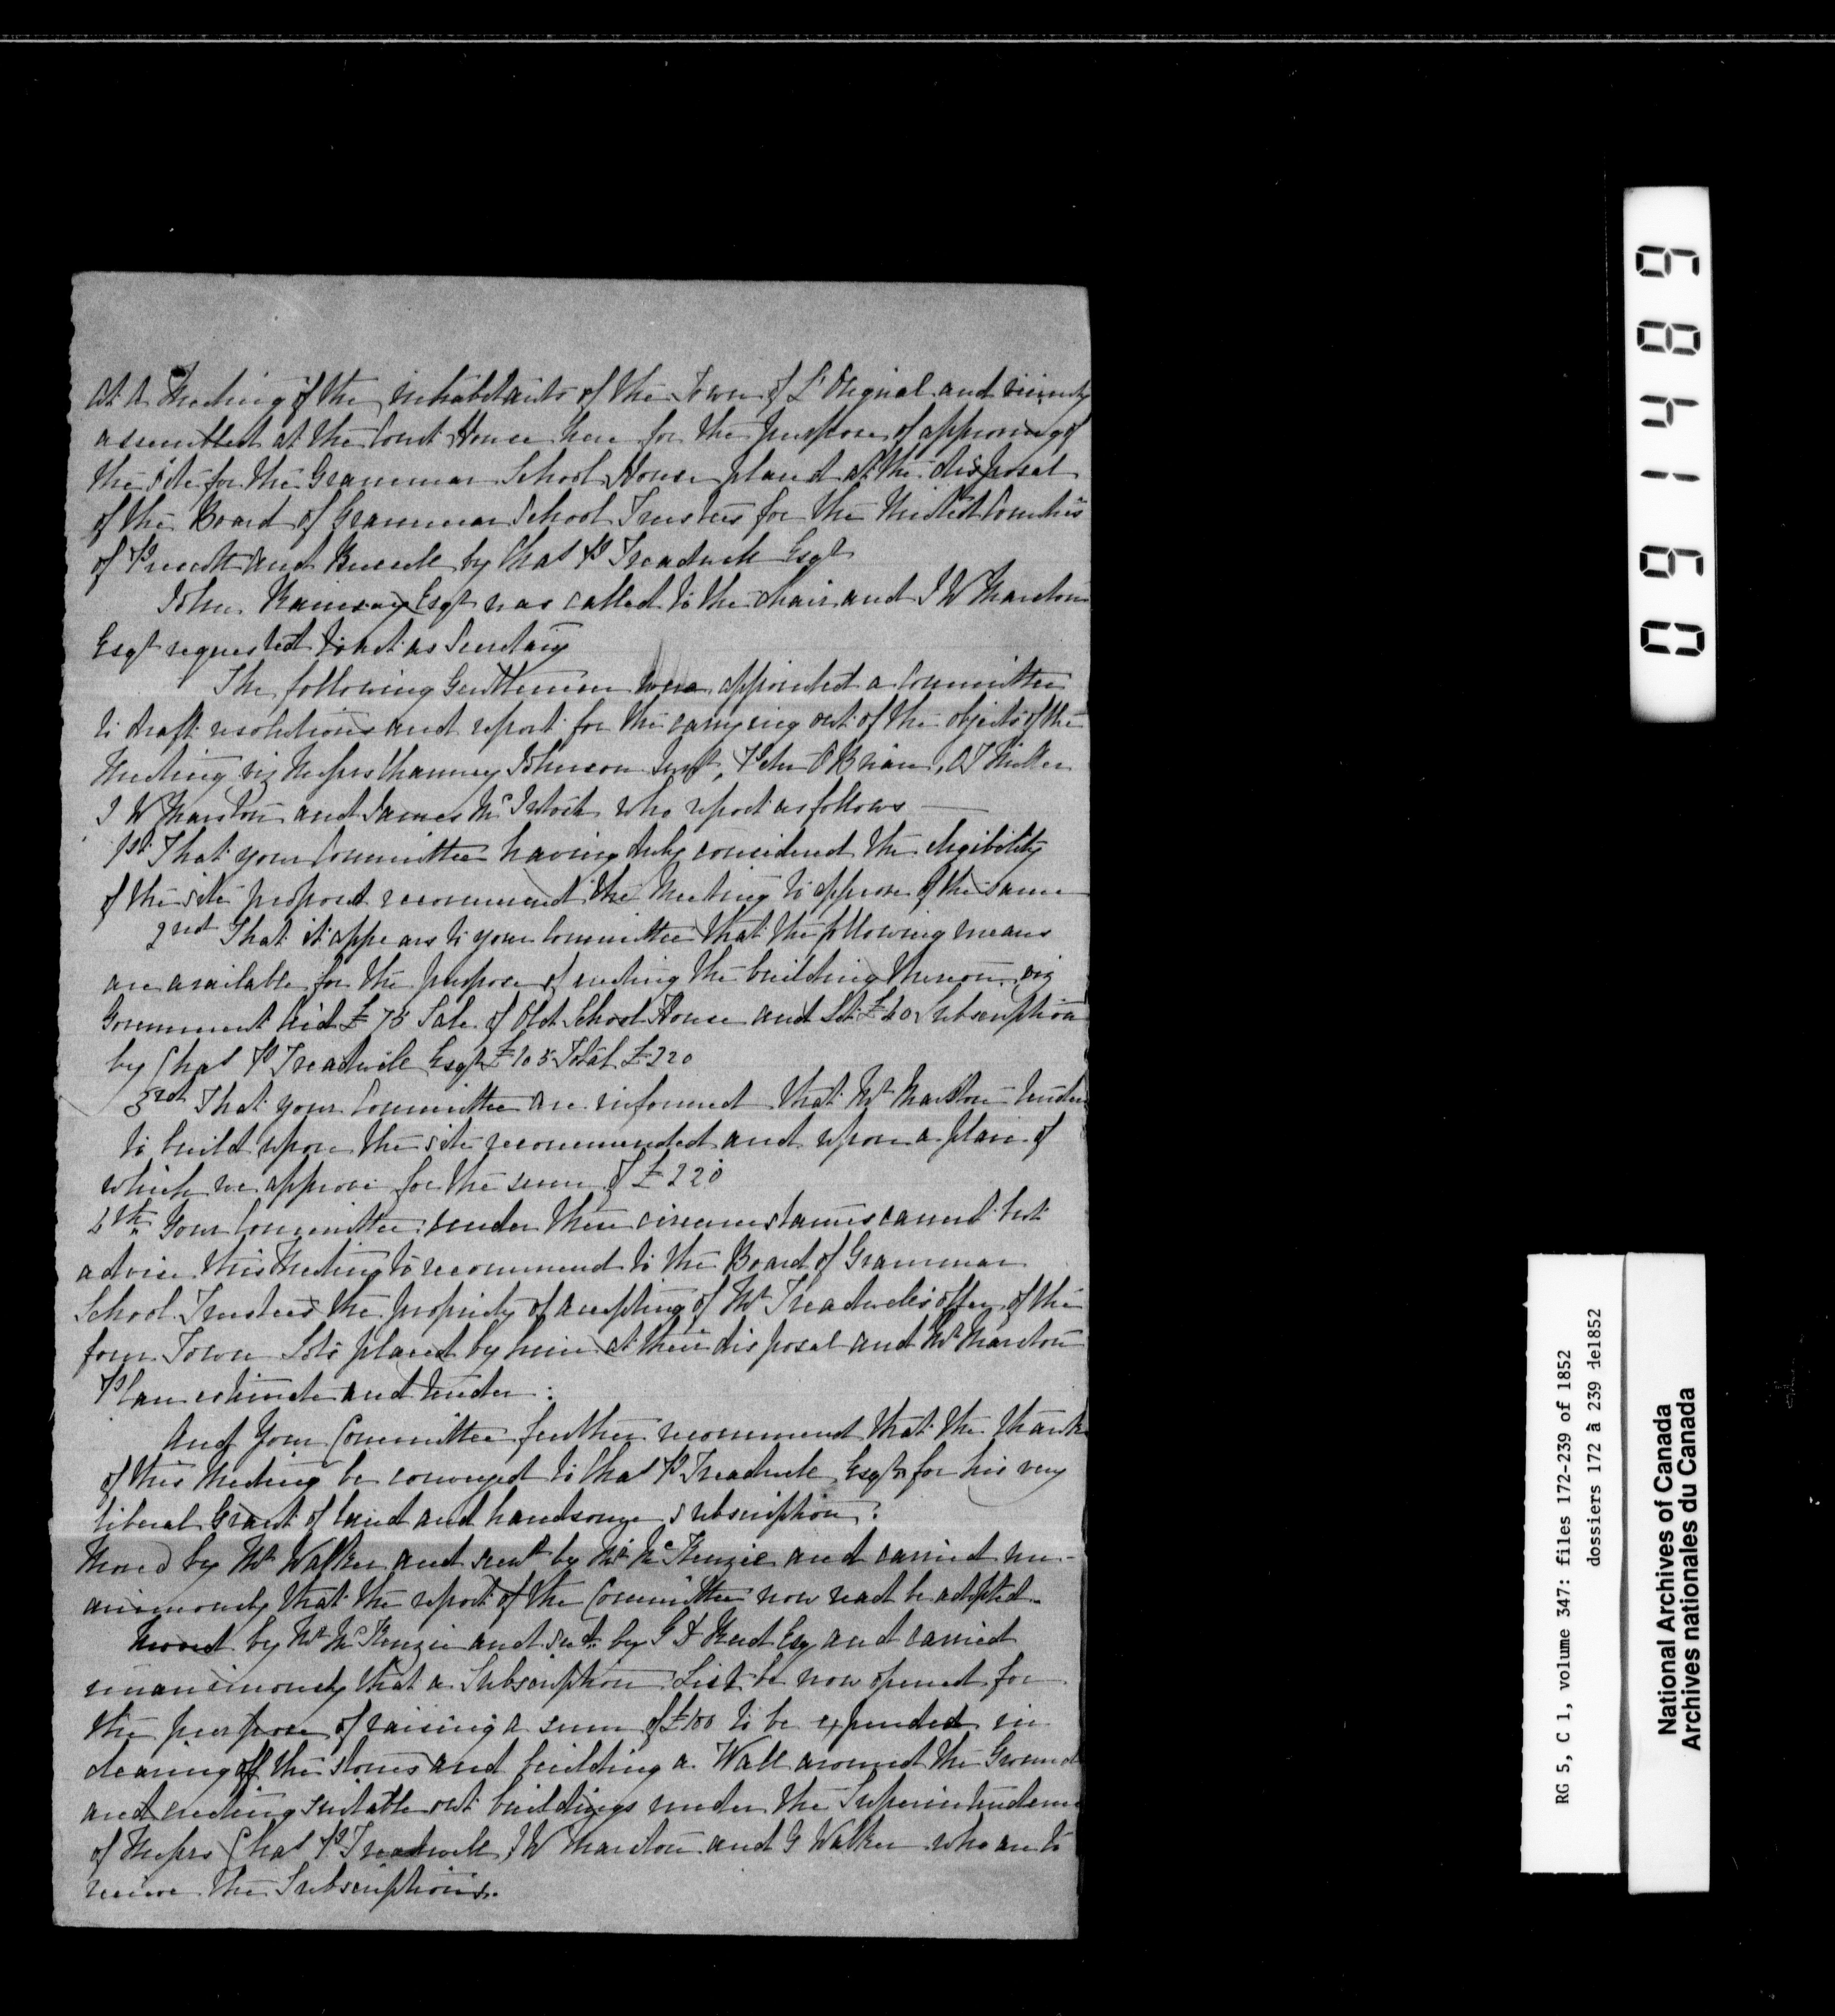 At a Meeting of the inhabitants of the Town of L'Orignal and vicinity
assembled at the Court House here for the purpose of approving of
the site for the Grammar School House placed at the disposal
of the Board of Grammar School Trustees for the United Counties
of Prescott and Russell by Chas P Treadwell Esqr
John Esqr was called to the chair and J W Marston
Esqr requested to act as Secretary
The following Gentlemen were appointed a Committee
to draft resolutions and report for the carrying out of the objects of the
Meeting viz Messrs Chauncey Johnson Junr, Peter O'Brian, Miller
J W Marston and James McIntosh who report as follows —
1st That your Committee having duly considered the eligibility
of the site proposed recommend the Meeting to approve of the same
2nd That it appears to your Committee that the following means
are available for the purpose of erecting the building thereon viz
Government Aid £75 Sale of Old School House and Lot £40 Subscription
by Chas P Treadwell Esqr £105 Total £220
3rd That your Committee are informed that Mr Marston tenders
to build upon the site recommended and upon a plan of
which we approve for the sum of £220
4th Your Committee under these circumstances cannot but
advise this Meeting to recommend to the Board of Grammar
School Trustees the propriety of accepting of Mr Treadwell's offer of the
four Town Lots placed by him at their disposal and Mr Marston
Plan estimate and tender:
And Your Committee further recommend that the thanks
of this Meeting be conveyed to Chas P Treadwell Esqr for his very
liberal Grant of land and handsome subscription:
Moved by Mr Walker and secd by Mr McKenzie and carried un-
animously that the report of the Committee now read be adopted.
Moved by Mr McKenzie and secd by Esq and carried
unanimously that a Subscription List be now opened for
the purpose of raising a sum of £100 to be expended in
clearing off the stones and building a Wall around the Ground
and erecting suitable out buildings under the Superintendence
of Messrs Chas P Treadwell, J W Marston and G Walker who are to
receive the Subscriptions.
091489
RG 5, C 1, volume 347: files 172-239 of 1852
dossiers 172 à 239 de1852
National Archives of Canada
Archives nationales du Canada